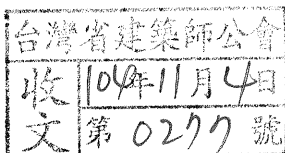 台灣省建築師公會
收文
104年11月4日
第 0277 號